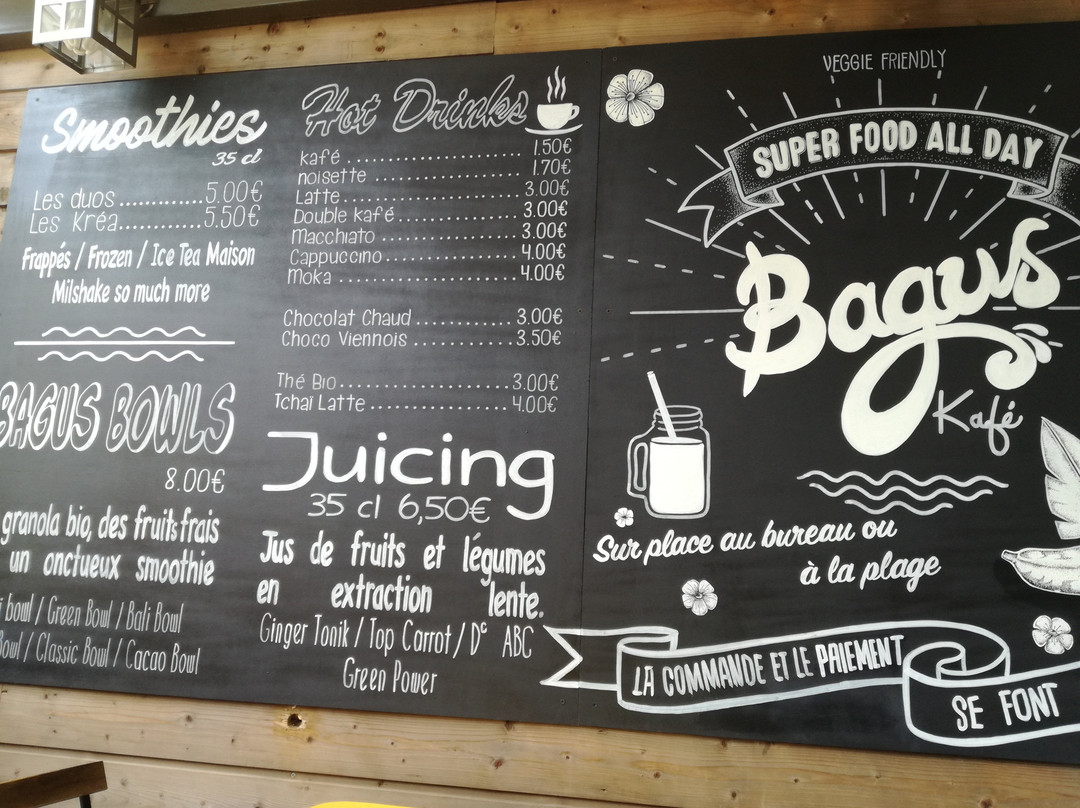 Smoothies
35 cl
Les duos.............5.00€
Les Kréa.............5.50€
Frappés / Frozen / Ice Tea Maison
Milshake so much more
BAGUS BOWLS
8.00€
granola bio, des fruits frais
un onctueux smoothie
bowl / Green Bowl / Bali Bowl
Bowl / Classic Bowl / Cacao Bowl
Hot Drinks
kafé ........................ 1.50€
noisette ..................... 1.70€
Latte ........................ 3.00€
Double kafé .................. 3.00€
Macchiato .................... 3.00€
Cappuccino ................... 4.00€
Moka ......................... 4.00€
Chocolat Chaud ............... 3.00€
Choco Viennois ............... 3.50€
Thé Bio ...................... 3.00€
Tchaï Latte .................. 4.00€
Juicing
35 cl 6,50€
Jus de fruits et légumes
en extraction lente.
Ginger Tonik / Top Carrot / D° ABC
Green Power
VEGGIE FRIENDLY
SUPER FOOD ALL DAY
Bagus
Kafé
Sur place au bureau ou
à la plage
LA COMMANDE ET LE PAIEMENT
SE FONT